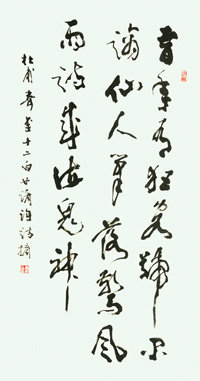 昔年有狂客號尔
謫仙人筆落驚風
雨詩成泣鬼神
杜甫寄李十二白廿韻詩摘